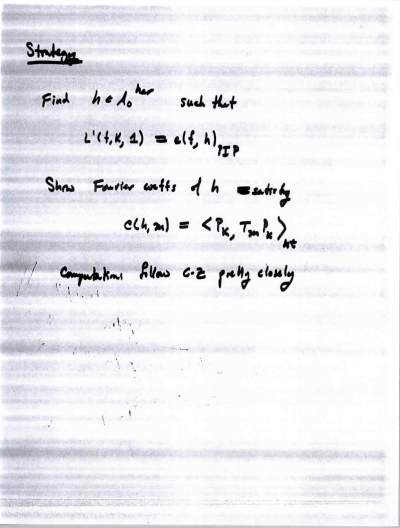 Strategy
Find h ∈ A₀^har such that
L'(f,K,1) = c(f, h)_PIP
Show Fourier coeffs of h satisfy
c(h,m) = <P_K, T_m P_K>_ht
Computations follow G-Z pretty closely